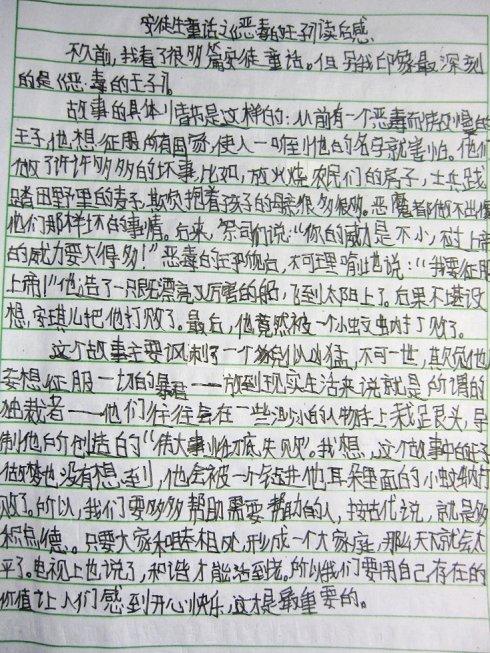 安徒生童话之《恶毒的王子》读后感
不久前,我看了很多篇安徒生童话。但另我印象最深刻
的是《恶毒的王子》。
故事的具体内容是这样的:从前有一个恶毒而傲慢的
王子,他想征服所有国家,使人一听到他的名字就害怕。他们
做了许许多多的坏事,比如,放火烧农民们的房子,士兵践
踏田野里的麦子,欺负抱着孩子的母亲很多很多。恶魔都做不出像
他们那样坏的事情。后来,祭司们说:“你的威力是不小,可上帝
的威力要大得多!”恶毒的王子听后,不可理喻地说:“我要征服
上帝!”他造了一只既漂亮又厉害的船,飞到太阳上了。后果不堪设
想,安琪儿把他打败了。最后,他竟然被一个小蚊虫打败了。
这个故事主要讽刺了一个貌似凶猛,不可一世,其实他
妄想征服一切的暴君——放到现实生活来说就是所谓的
独裁者——他们往往会在一些渺小的人物身上栽足艮头,导
制他所创造的“伟大事业”彻底失败。我想,这个故事中的王子
做梦也没有想到,他会被一个钻进他耳朵里面的小蚊虫打
败了。所以,我们要多多帮助需要帮助的人,按古代说,就是多
积点德。只要大家和睦相处,形成一个大家庭,那么天下就会太
平了。电视上也说了,和谐才能活到老。所以我们要用自己存在的
价值让人们感到开心快乐,这才是最重要的。